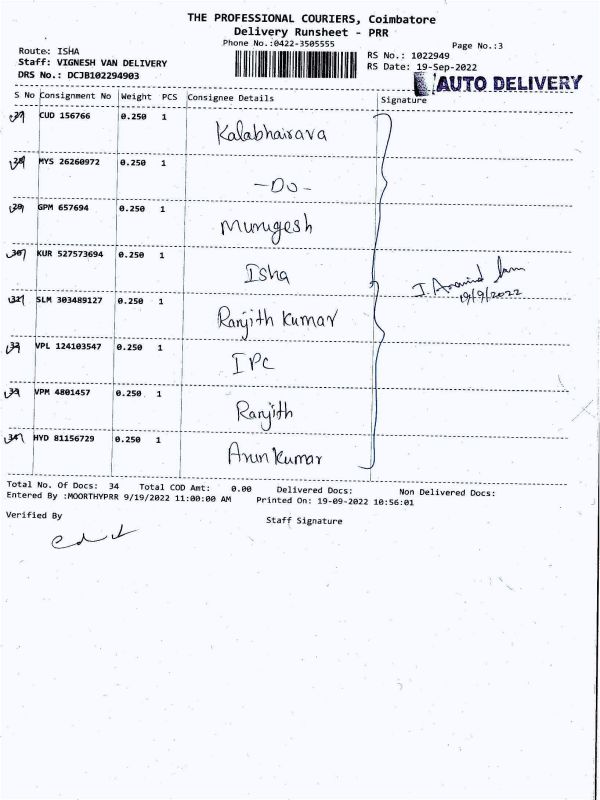 THE PROFESSIONAL COURIERS, Coimbatore
Delivery Runsheet - PRR
Phone No.:0422-3505555
Page No.:3
Route: ISHA
Staff: VIGNESH VAN DELIVERY
DRS No.: DCJB102294903
RS No.: 1022949
RS Date: 19-Sep-2022
AUTO DELIVERY
S No Consignment No Weight PCS Consignee Details Signature
CUD 156766 0.250 1 Kalabhairava
MYS 26260972 0.250 1 -Do-
29 GPM 657694 0.250 1 Murugesh
30 KUR 527573694 0.250 1 Isha
SLM 303489127 0.250 1 Ranjith Kumar
VPL 124103547 0.250 1 IPC
33 VPM 4801457 0.250 1 Ranjith
34 HYD 81156729 0.250 1 Arun Kumar
19/9/2022
Total No. Of Docs: 34 Total COD Amt: 0.00 Delivered Docs: Non Delivered Docs:
Entered By :MOORTHYPRR 9/19/2022 11:00:00 AM Printed On: 19-09-2022 10:56:01
Verified By Staff Signature